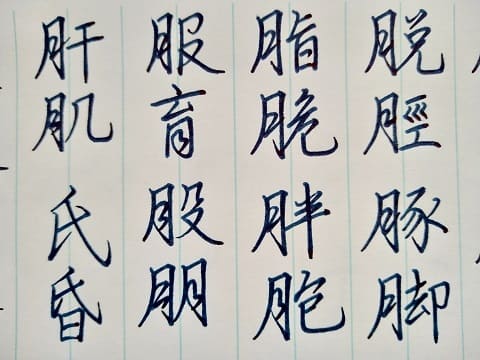 肝肌氏昏
服育股朋
脂脆胖胞
脱脛豚脚